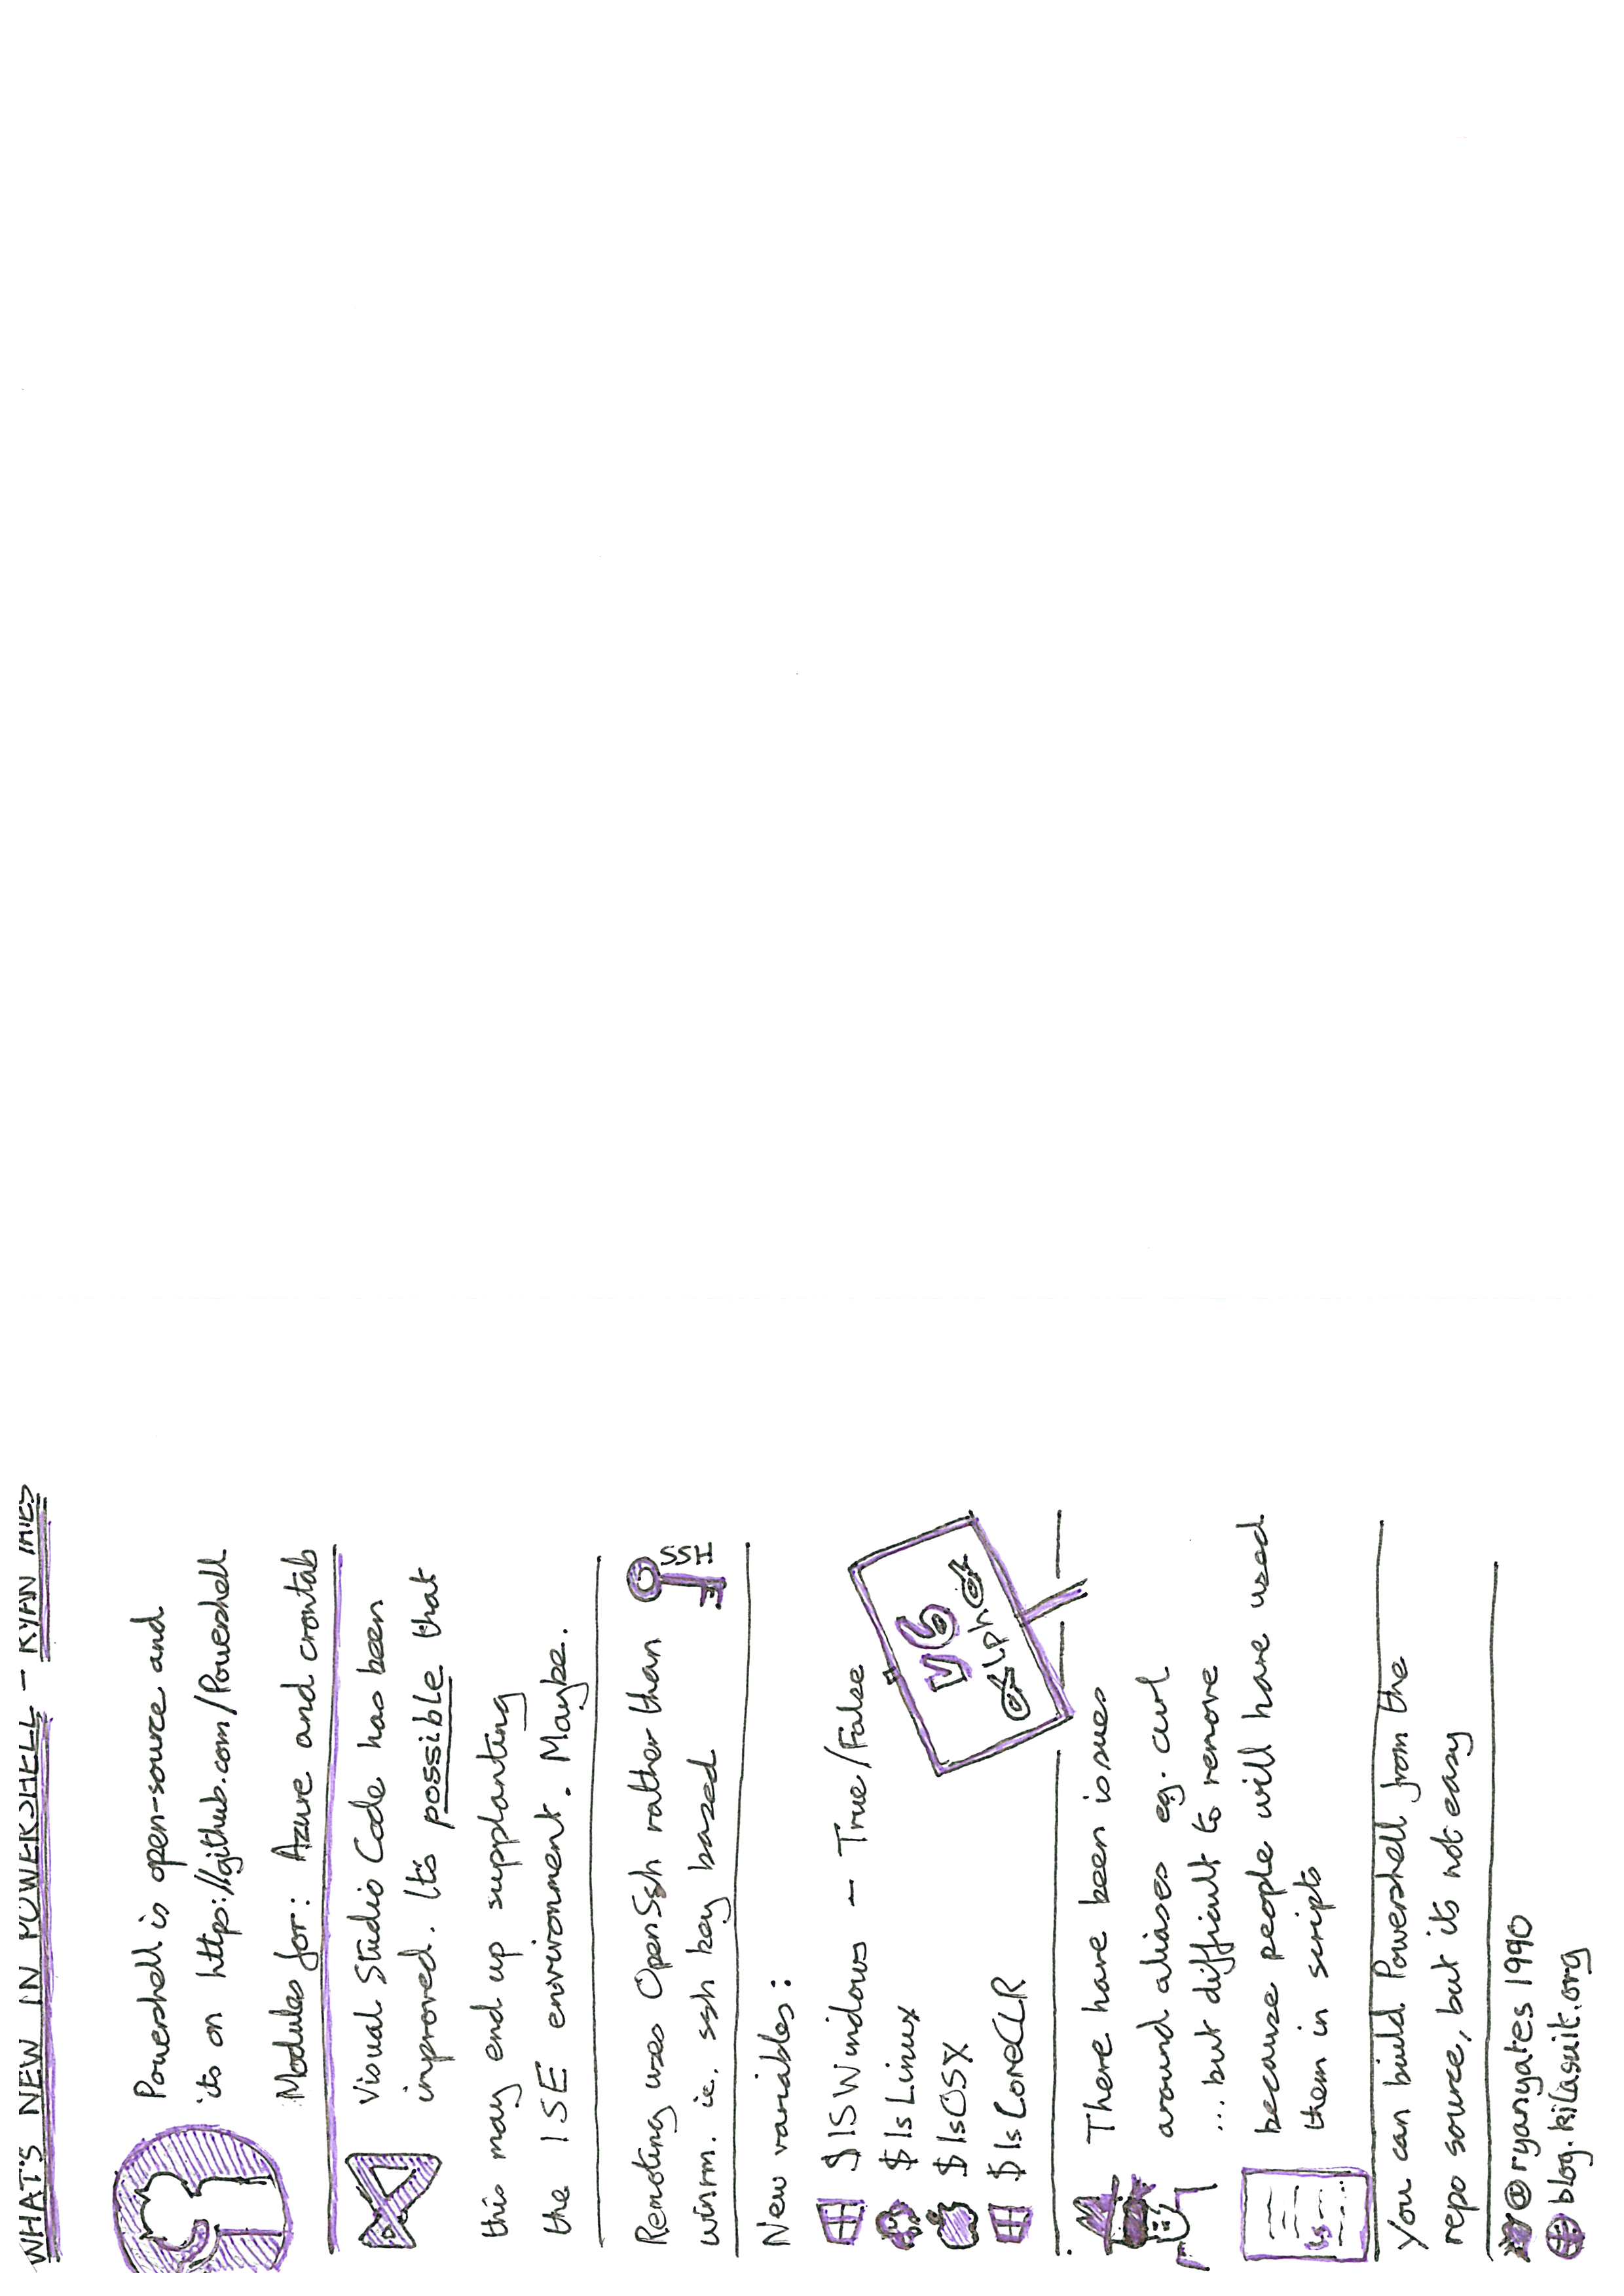 WHAT'S NEW IN POWERSHELL - RYAN YATES
Powershell is open-source and
its on https://github.com/Powershell
Modules for: Azure and crontab
Visual Studio Code has been
improved. It's possible that
this may end up supplanting
the ISE environment. Maybe.
Remoting uses OpenSsh rather than
winrm. ie. ssh key based
SSH
New variables:
$ISWindows - True/False
$IsLinux
$IsOSX
$IsCoreCLR
V6
alpha
There have been issues
around aliases eg. curl
... but difficult to remove
because people will have used
them in scripts
ls
You can build Powershell from the
repo source, but its not easy
@ryanyates1990
blog.kilasuit.org